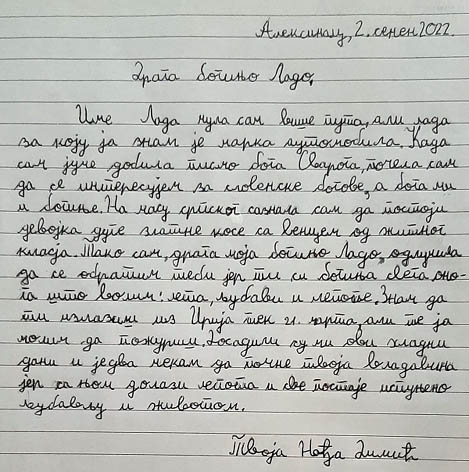 Алексинац, 2. сечењ 2022.
Драга богињо Ладо,
Име Лада чула сам више пута, али лада
за коју ја знам је марка аутомобила. Када
сам јуче добила писмо бога Сварога, почела сам
да се интересујем за словенске богове, а бога ми
и богиње. На часу српског сазнала сам да постоји
девојка дуге златне косе са венцем од житног
класја. Тако сам, драга моја богињо Ладо, одлучила
да се обратим теби јер ти си богиња свега оно-
га што волим: лета, љубави и лепоте. Знам да
ти излазиш из Ирија тек 21. марта, али те ја
молим да пожуриш. Досадили су ми ови хладни
дани и једва чекам да почне твоја владавина
јер са њом долази лепота и све постаје испуњено
љубављу и животом.
Твоја Нађа Димић